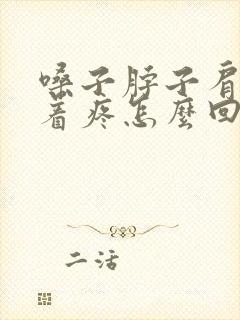 嗓子脖子肩
着疼怎麼回
二活